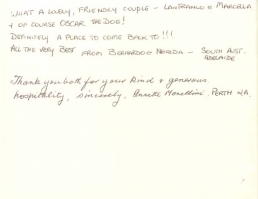 WHAT A LOVELY, FRIENDLY COUPLE - LANFRANCO & MARCELLA
& OF COURSE OSCAR THE DOG!
DEFINITELY A PLACE TO COME BACK TO!!!
ALL THE VERY BEST FROM BERNARDO & NERIDA - SOUTH AUST.
ADELAIDE
Thank you both for your kind & generous
hospitality, sincerely, Annette Monellini, PERTH WA